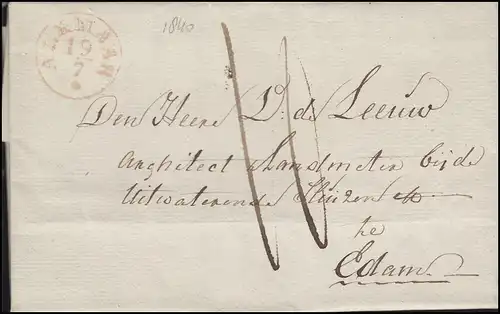 1840
ALKMAAR
19
7
Den Heere D. de Leeuw
Architect & Landmeter bij de
Uitwaterende Sluizen
te
Edam